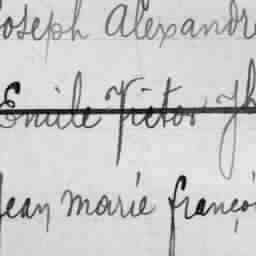 Joseph Alexandre
Emile Victor
Jean Marie Franço